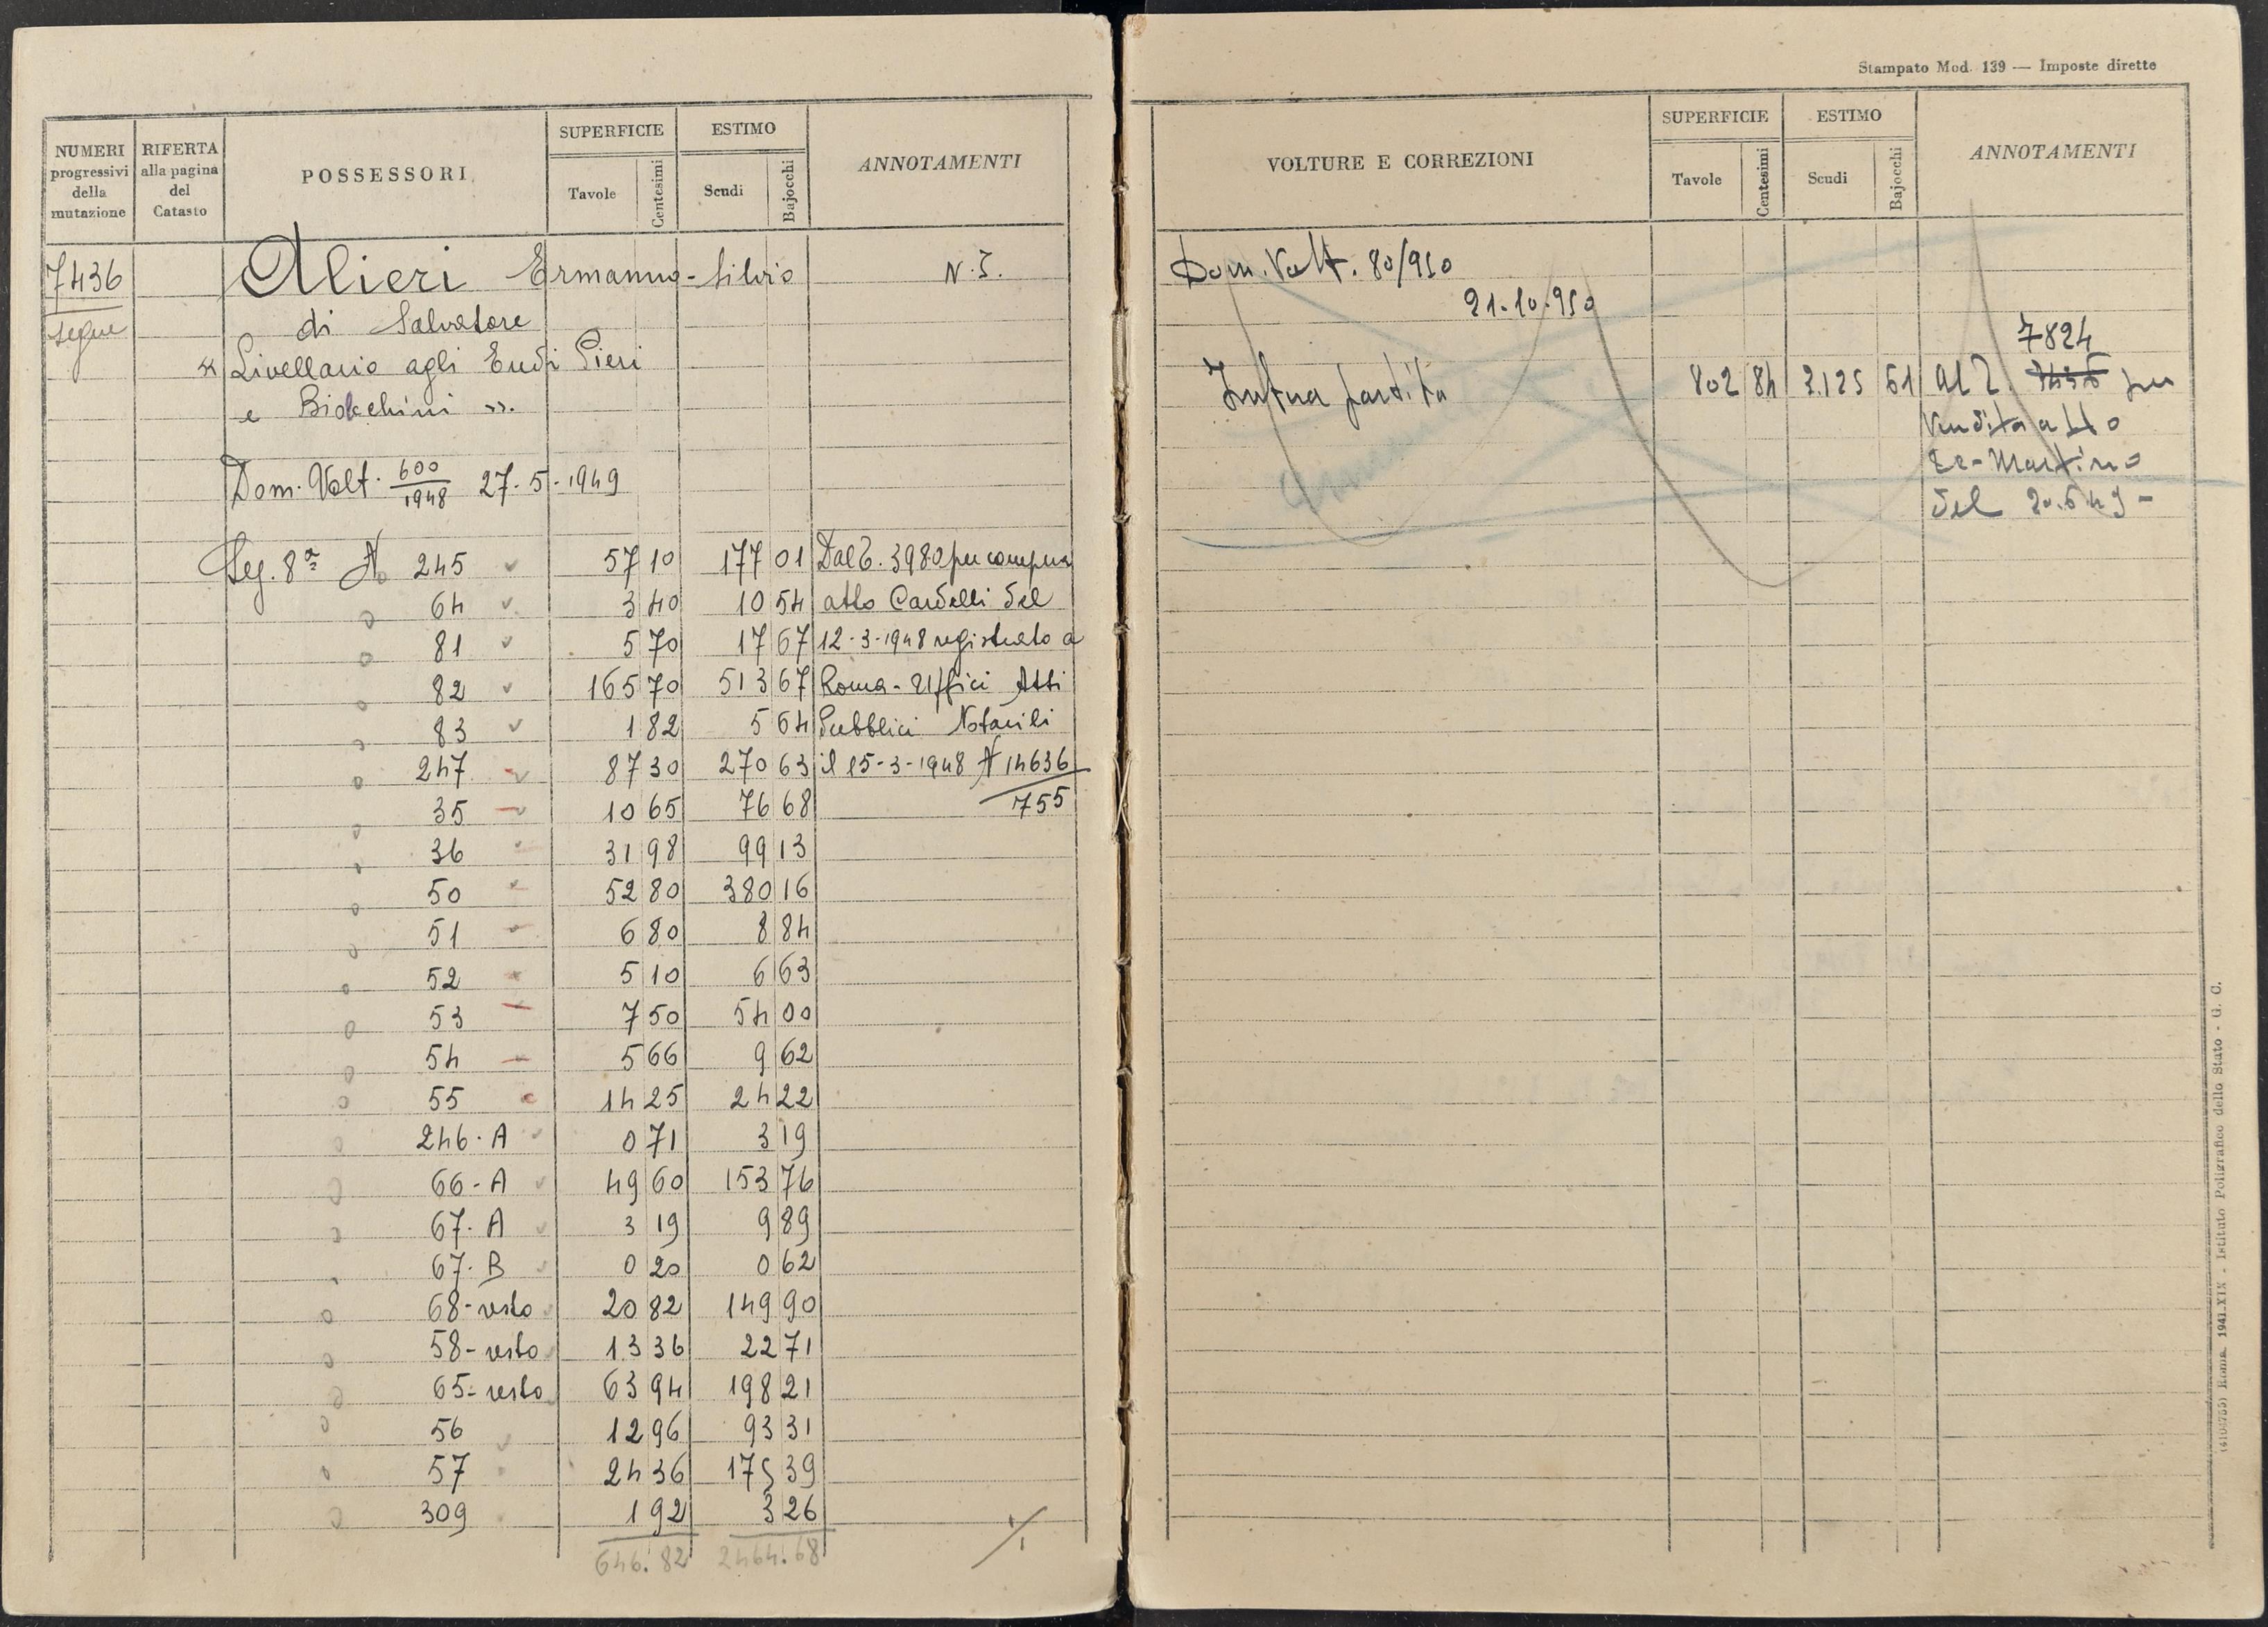 NUMERI progressivi della mutazione
RIFERTA alla pagina del Catasto
POSSESSORI
SUPERFICIE
Tavole
Centesimi
ESTIMO
Scudi
Bajocchi
ANNOTAMENTI
7436 Alieri Ermanno-Silvio N.
segue di Salvatore
Livellario agli Eredi Pieri
e
Dom. Volt. 600/1948 27-5-1949
Seg. 8ª N 245 57 10 177 01 Dal 3980 per compra
64 3 40 10 54 atto Cardelli del
81 5 70 17 67 12-3-1948 registrato a
82 165 70 513 67 Roma - Uffici Atti
83 1 82 5 64 Pubblici Notarili
247 87 30 270 63 il 15-3-1948 N 14636
35 10 65 76 68 755
36 31 98 99 13
50 52 80 380 16
51 6 80 8 84
52 5 10 6 63
53 7 50 54 00
54 5 66 9 62
55 14 25 24 22
246-A 0 71 3 19
66-A 49 60 153 76
67-A 3 19 9 89
67-B 0 20 0 62
68-resto 20 82 149 90
58-resto 13 36 22 71
65-resto 63 94 198 21
56 12 96 93 31
57 24 36 175 39
309 1 92 3 26
646.82 2464.68
Stampato Mod. 139 — Imposte dirette
VOLTURE E CORREZIONI
SUPERFICIE
Tavole
Centesimi
ESTIMO
Scudi
Bajocchi
ANNOTAMENTI
Dom. Volt. 80/950
21-10-950
7824
Intera partita 802 84 3.125 61 al per
vendita atto
De-Martino
del
(4104755) Roma, 1941-XIX - Istituto Poligrafico dello Stato - G. C.